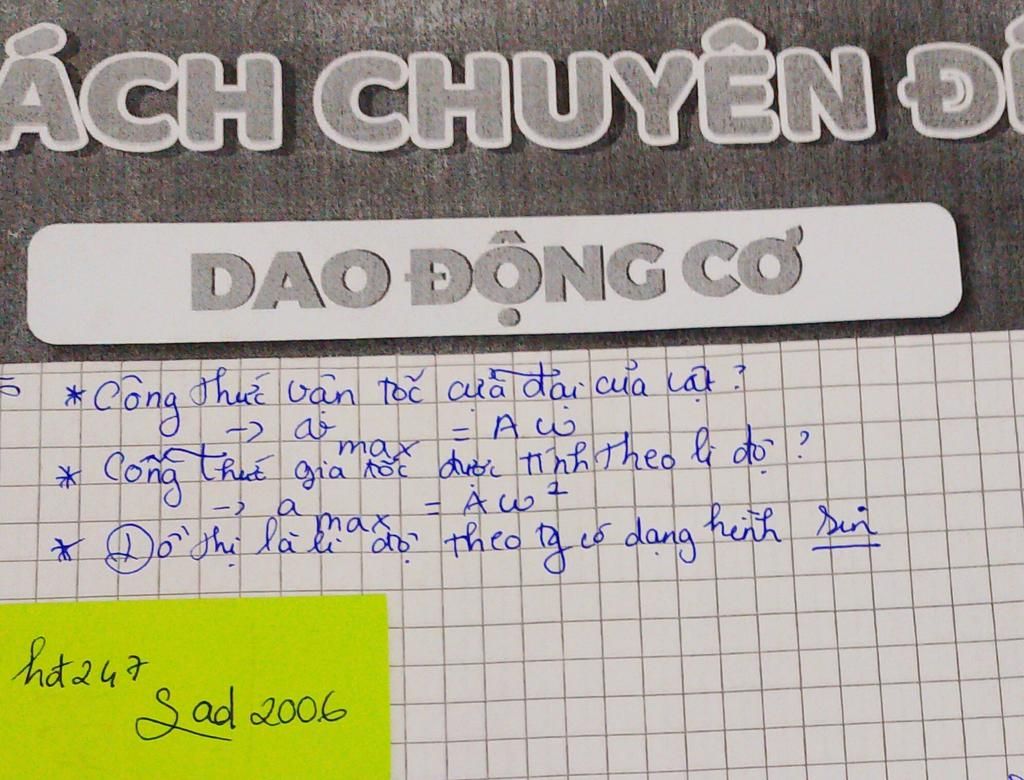 ÁCH CHUYÊN Đ
DAO ĐỘNG CƠ
* Công thức vận tốc cực đại của vật ?
→ v max = Aω
* Công thức gia tốc được tính theo li độ ?
→ a max = Aω²
* Đồ thị là li độ theo tg có dạng hình sin
hđ247
Sad 2006